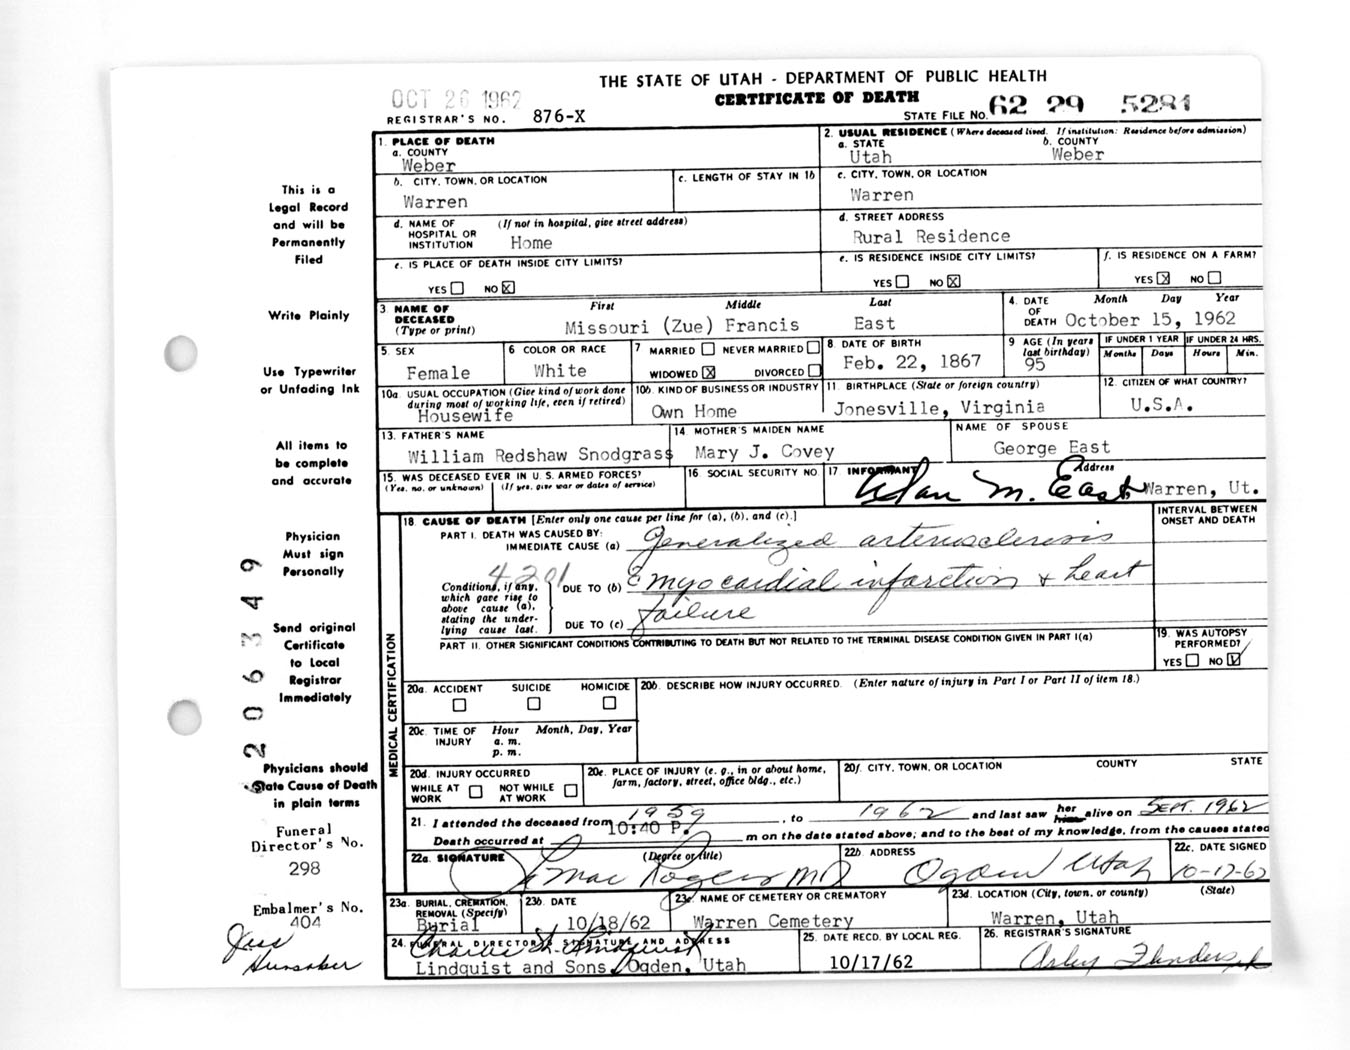 THE STATE OF UTAH - DEPARTMENT OF PUBLIC HEALTH
CERTIFICATE OF DEATH
OCT 26 1962
REGISTRAR'S NO. 876-X
STATE FILE NO. 62 29 5281
This is a
Legal Record
and will be
Permanently
Filed
Write Plainly
Use Typewriter
or Unfading Ink
All items to
be complete
and accurate
Physician
Must sign
Personally
Send original
Certificate
to Local
Registrar
Immediately
Physicians should
State Cause of Death
in plain terms
Funeral
Director's No.
298
Embalmer's No.
404
Jess
Hunsaker
2206349
1. PLACE OF DEATH
a. COUNTY
Weber
b. CITY, TOWN, OR LOCATION
Warren
c. LENGTH OF STAY IN 1b
d. NAME OF HOSPITAL OR INSTITUTION (If not in hospital, give street address)
Home
e. IS PLACE OF DEATH INSIDE CITY LIMITS?
YES NO X
2. USUAL RESIDENCE (Where deceased lived. If institution: Residence before admission)
a. STATE
Utah
b. COUNTY
Weber
c. CITY, TOWN, OR LOCATION
Warren
d. STREET ADDRESS
Rural Residence
e. IS RESIDENCE INSIDE CITY LIMITS?
YES NO X
f. IS RESIDENCE ON A FARM?
YES X NO
3. NAME OF DECEASED (Type or print)
First Middle Last
Missouri (Zue) Francis East
4. DATE OF DEATH Month Day Year
October 15, 1962
5. SEX
Female
6 COLOR OR RACE
White
7 MARRIED NEVER MARRIED
WIDOWED X DIVORCED
8 DATE OF BIRTH
Feb. 22, 1867
9 AGE (In years last birthday)
95
IF UNDER 1 YEAR
Months Days
IF UNDER 24 HRS.
Hours Min.
10a. USUAL OCCUPATION (Give kind of work done during most of working life, even if retired)
Housewife
10b. KIND OF BUSINESS OR INDUSTRY
Own Home
11. BIRTHPLACE (State or foreign country)
Jonesville, Virginia
12. CITIZEN OF WHAT COUNTRY?
U.S.A.
13. FATHER'S NAME
William Redshaw Snodgrass
14 MOTHER'S MAIDEN NAME
Mary J. Covey
NAME OF SPOUSE
George East
15. WAS DECEASED EVER IN U.S. ARMED FORCES?
(Yes, no, or unknown) (If yes, give war or dates of service)
16. SOCIAL SECURITY NO.
17 INFORMANT Address
M. East Warren, Ut.
MEDICAL CERTIFICATION
18. CAUSE OF DEATH [Enter only one cause per line for (a), (b), and (c).]
INTERVAL BETWEEN ONSET AND DEATH
PART I. DEATH WAS CAUSED BY:
IMMEDIATE CAUSE (a) Generalized arteriosclerosis
4201
Conditions, if any, which gave rise to above cause (a), stating the underlying cause last.
DUE TO (b) c̄ myocardial infarction & heart
failure
DUE TO (c)
PART II. OTHER SIGNIFICANT CONDITIONS CONTRIBUTING TO DEATH BUT NOT RELATED TO THE TERMINAL DISEASE CONDITION GIVEN IN PART I(a)
19. WAS AUTOPSY PERFORMED?
YES NO ✓
20a. ACCIDENT SUICIDE HOMICIDE
20b. DESCRIBE HOW INJURY OCCURRED. (Enter nature of injury in Part I or Part II of item 18.)
20c. TIME OF INJURY Hour Month, Day, Year
a. m.
p. m.
20d. INJURY OCCURRED
WHILE AT WORK NOT WHILE AT WORK
20e. PLACE OF INJURY (e. g., in or about home, farm, factory, street, office bldg., etc.)
20f. CITY, TOWN, OR LOCATION COUNTY STATE
21. I attended the deceased from 1959, to 1962 and last saw her him alive on Sept. 1962
Death occurred at 10:40 P. m on the date stated above; and to the best of my knowledge, from the causes stated
22a. SIGNATURE (Degree or title)
Rogers MD
22b. ADDRESS
Ogden Utah
22c. DATE SIGNED
10-17-62
23a. BURIAL, CREMATION, REMOVAL (Specify)
Burial
23b. DATE
10/18/62
23c. NAME OF CEMETERY OR CREMATORY
Warren Cemetery
23d. LOCATION (City, town, or county) (State)
Warren, Utah
24. FUNERAL DIRECTOR'S SIGNATURE AND ADDRESS
Charles Lindquist
Lindquist and Sons, Ogden, Utah
25. DATE RECD. BY LOCAL REG.
10/17/62
26. REGISTRAR'S SIGNATURE